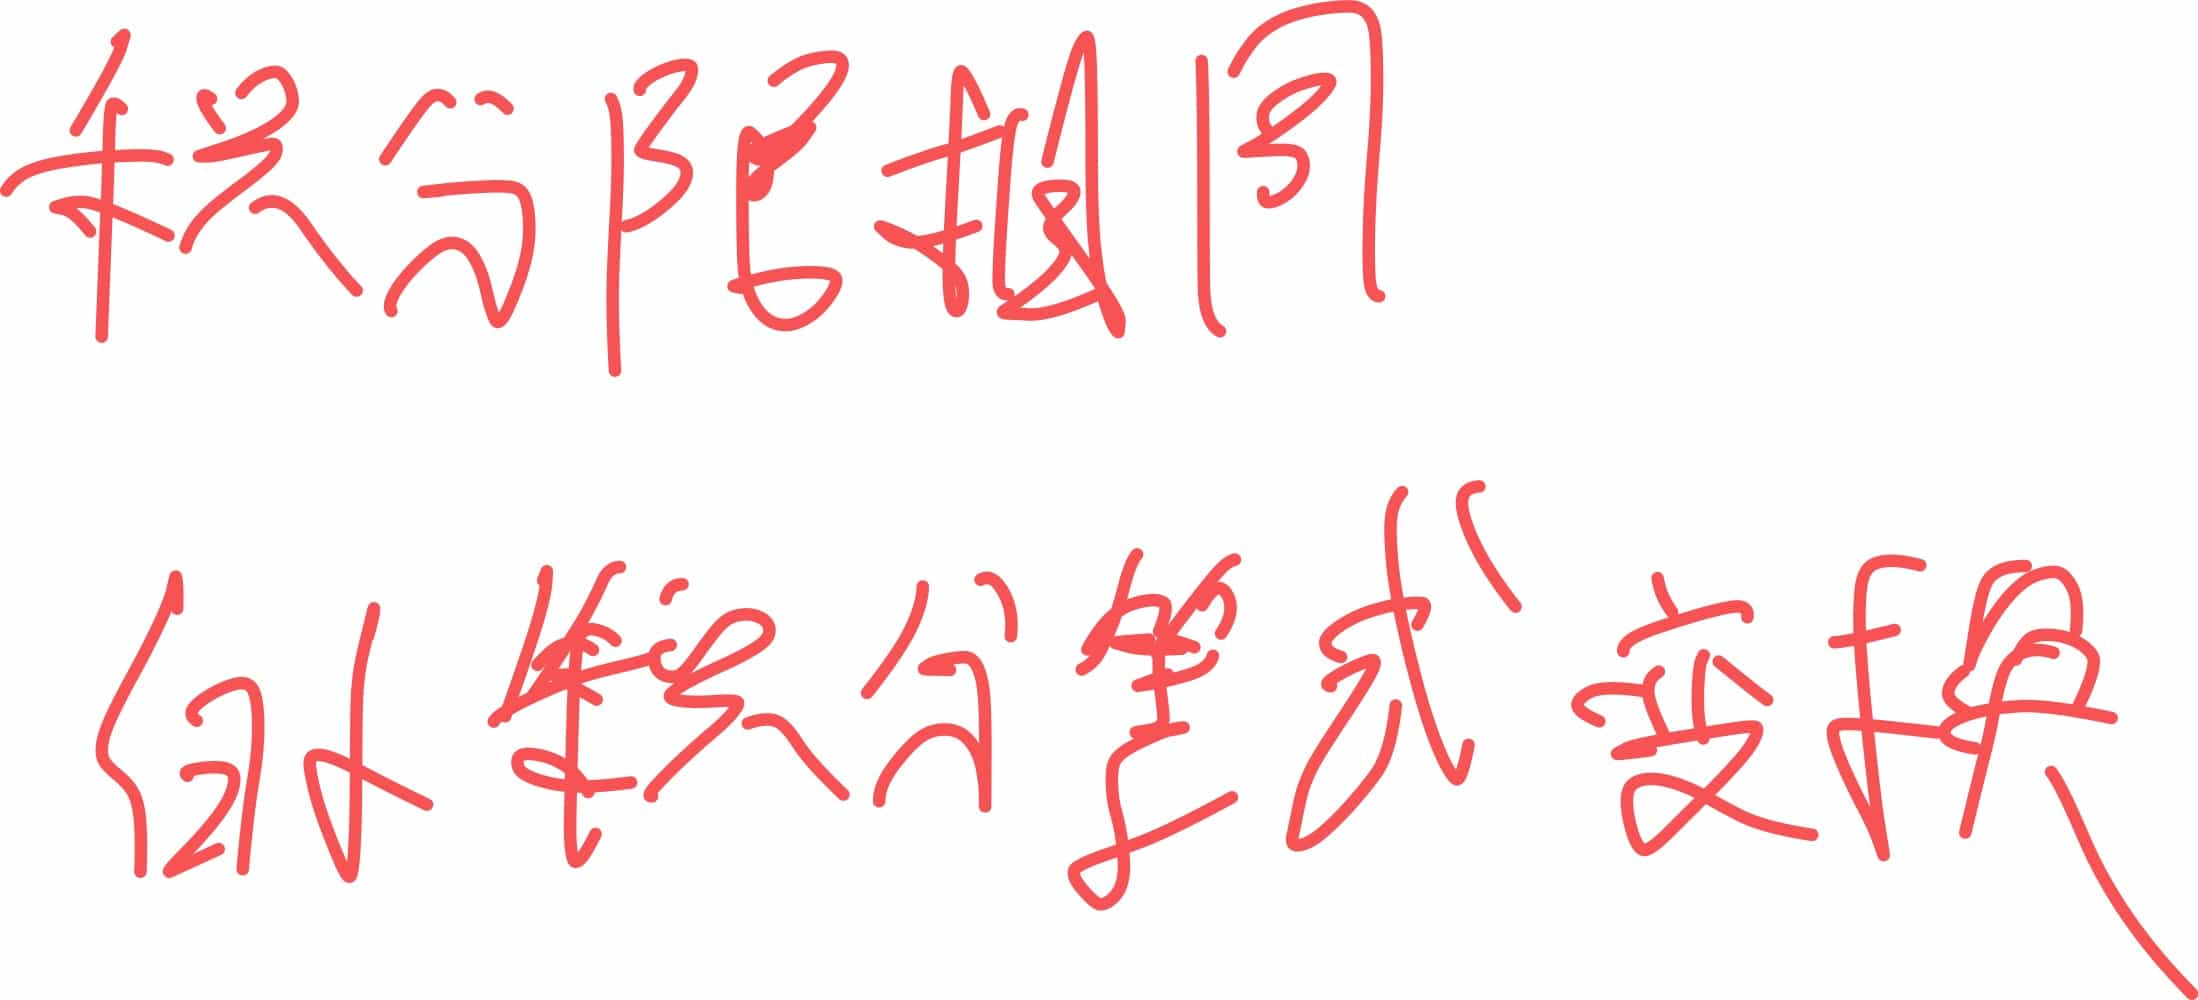 积分限相同
向 积分等式变换